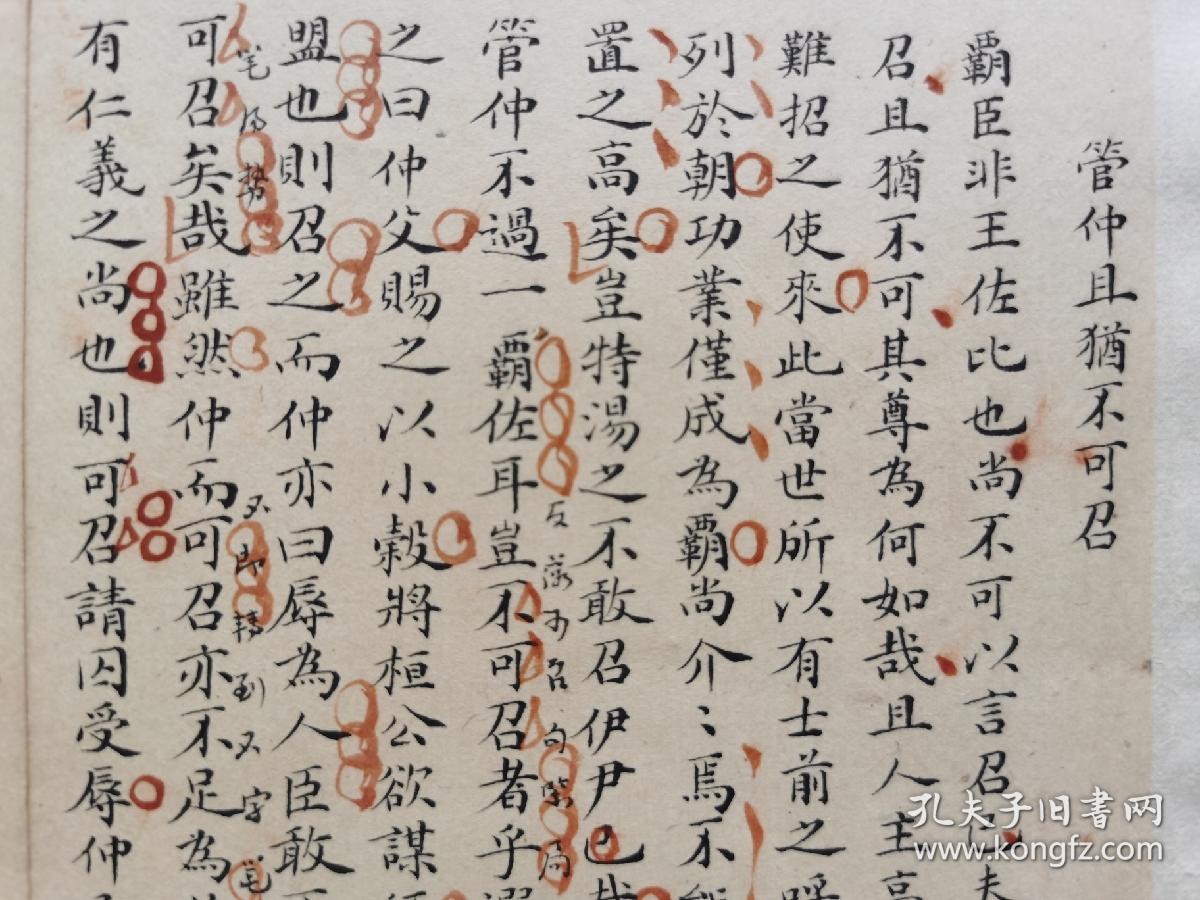 管仲且猶不可召
覇臣非王佐比也尚不可以言召仁夫
召且猶不可其尊為何如哉且人主高
難招之使來此當世所以有士前之
列於朝功業僅成為覇尚介〻焉不
置之高矣豈特湯之不敢召伊尹也哉
管仲不過一覇佐耳豈不可召者乎
之曰仲父賜之以小穀將桓公欲謀
盟也則召之而仲亦曰辱為人臣敢
可召矣哉雖然仲而可召亦不足為
有仁義之尚也則可召請囚受辱仲
反落可召句緊局
笔陽勢
不即轉到不字笔
孔夫子旧书网
www.kongfz.com